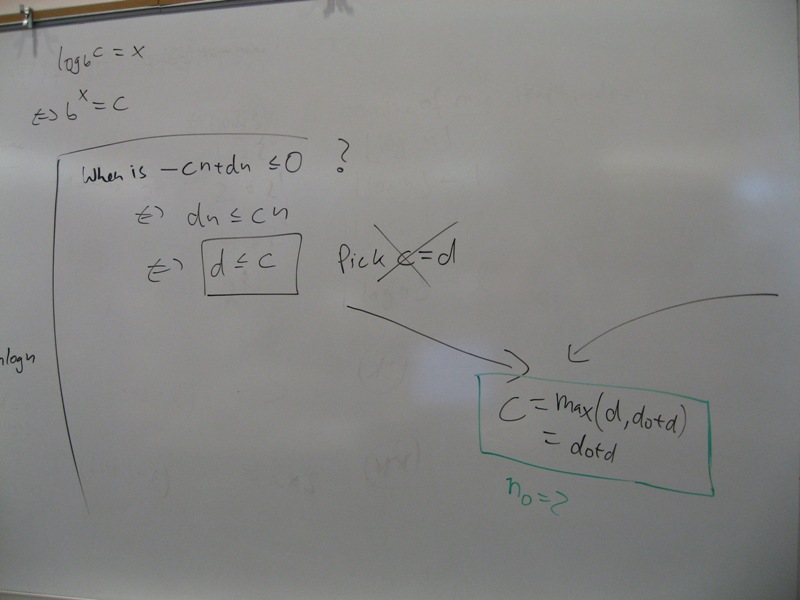 log_b c = x
⇔ b^x = c
When is -cn+dn ≤ 0 ?
⇔ dn ≤ cn
⇔ d ≤ c
Pick c=d
nlogn
C = max(d, d₀+d)
= d₀+d
n₀ = 2